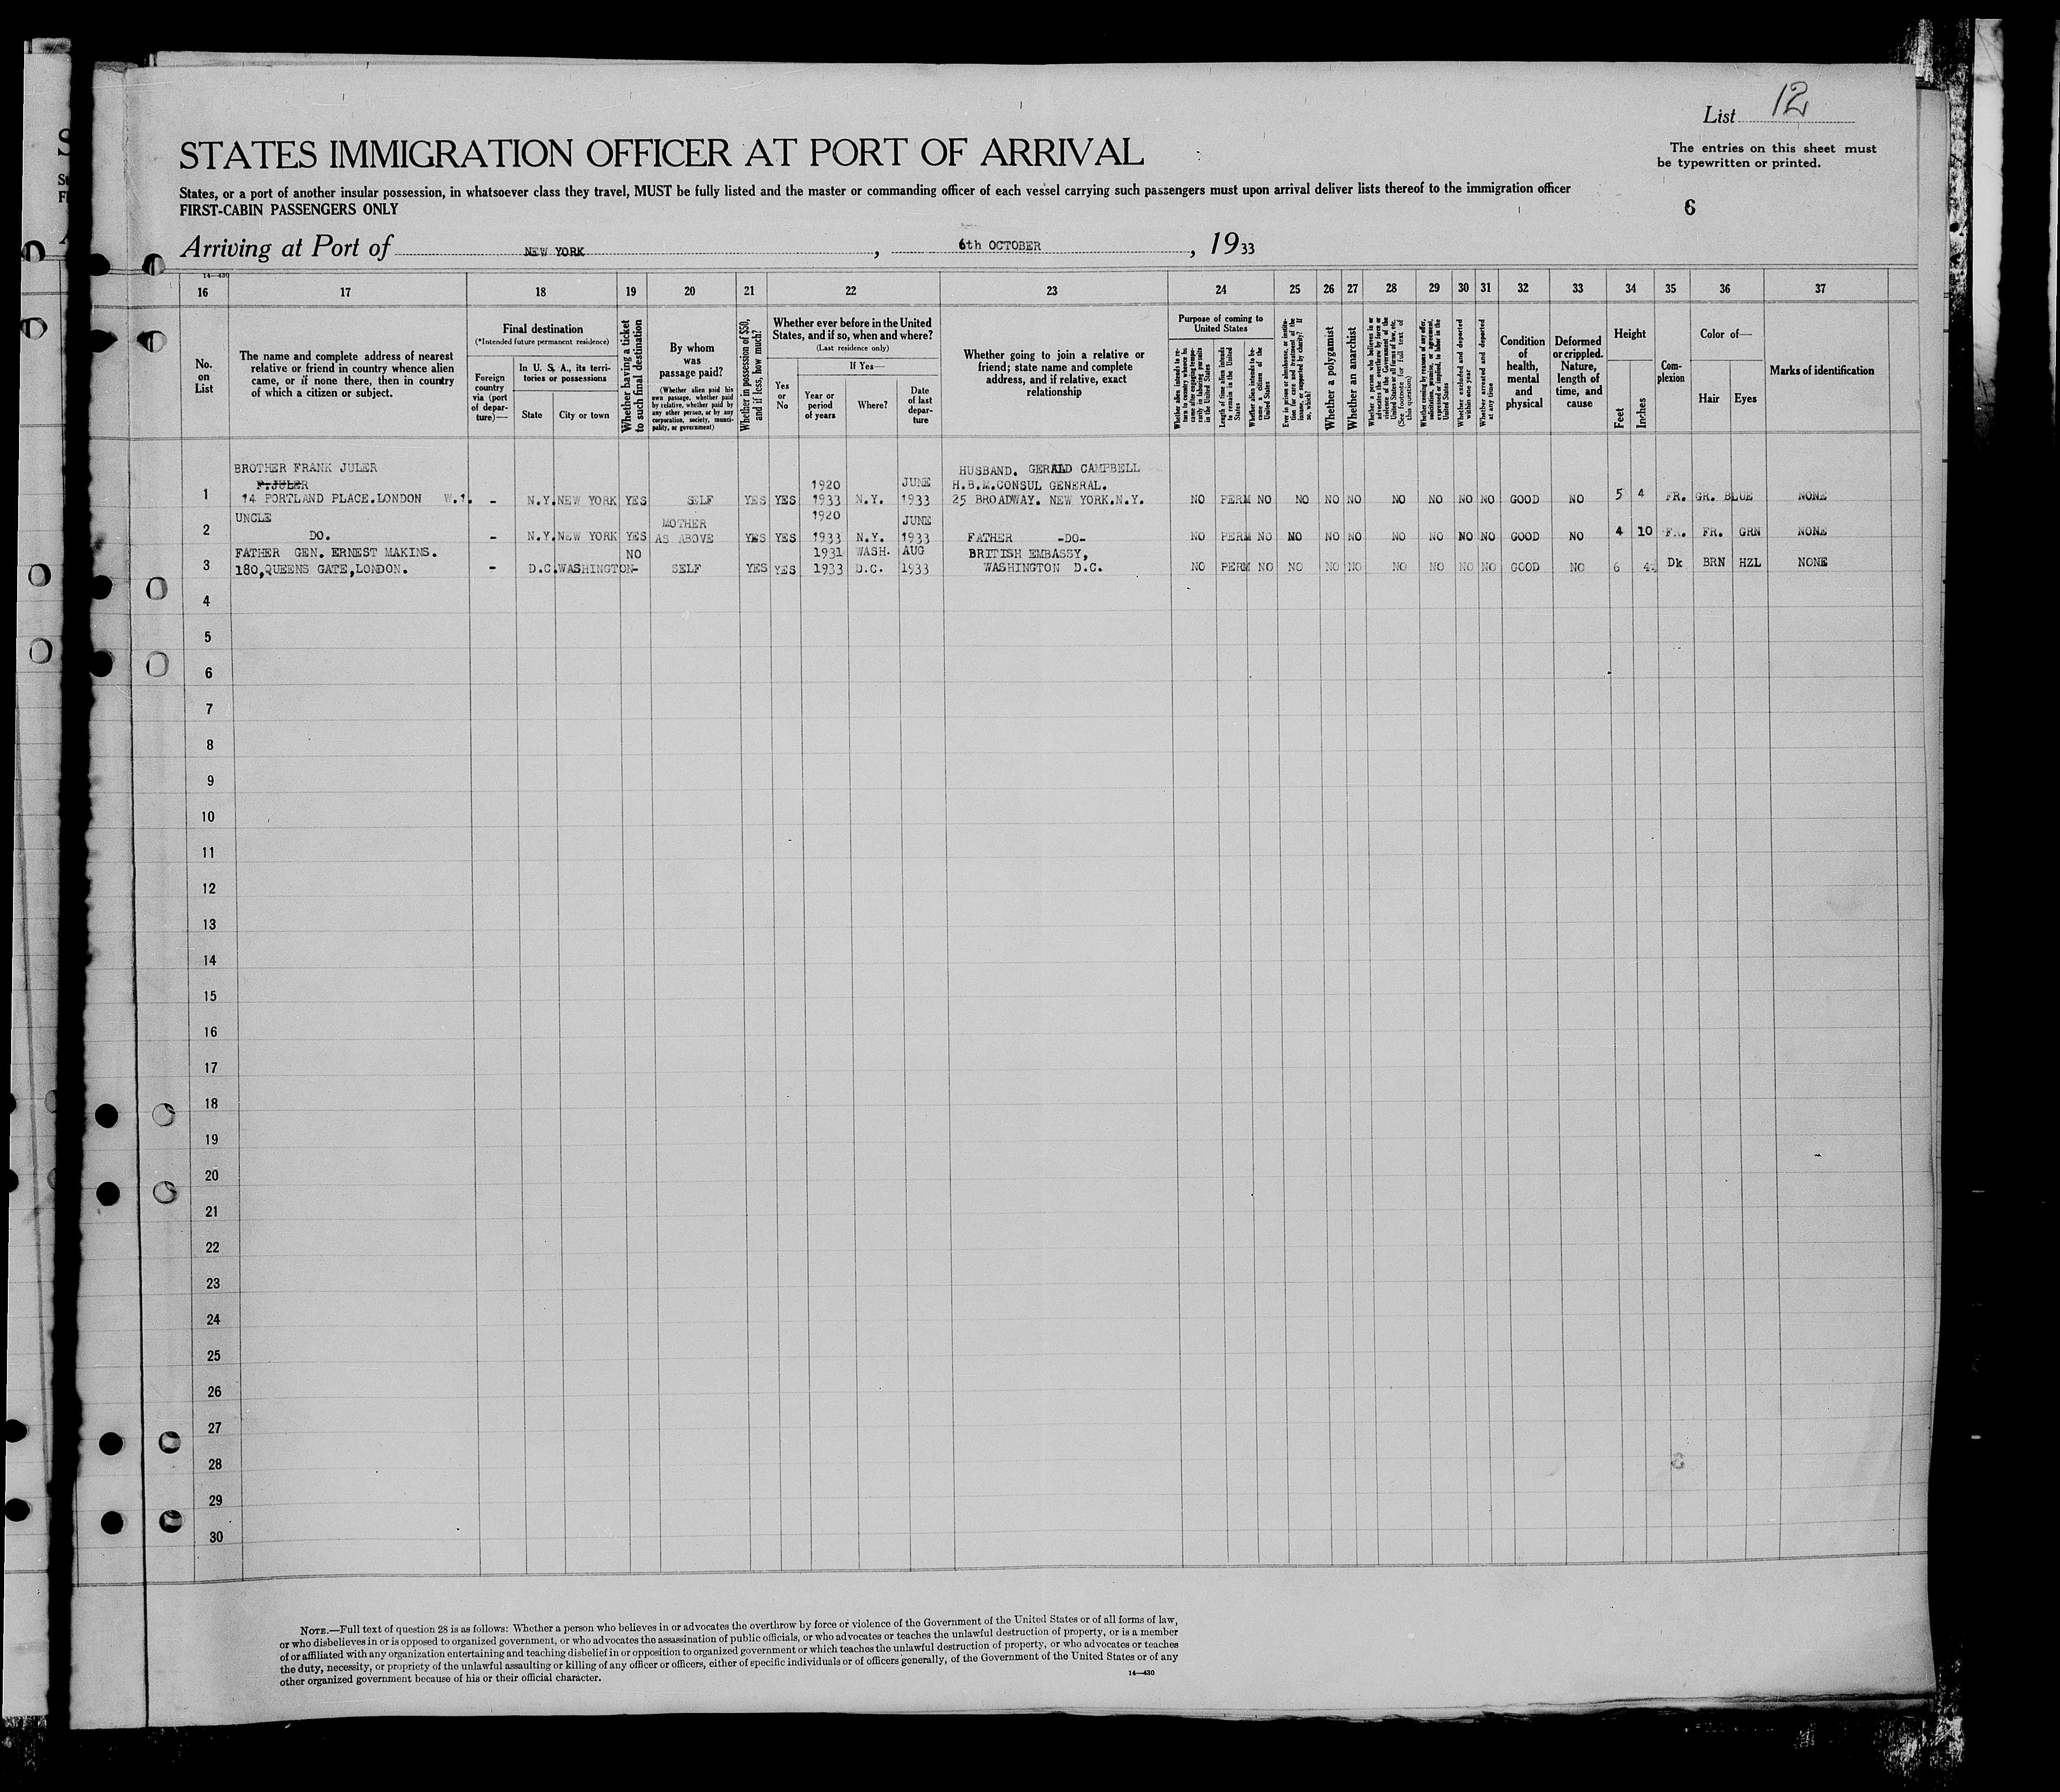 List 12
The entries on this sheet must
be typewritten or printed.
STATES IMMIGRATION OFFICER AT PORT OF ARRIVAL
States, or a port of another insular possession, in whatsoever class they travel, MUST be fully listed and the master or commanding officer of each vessel carrying such passengers must upon arrival deliver lists thereof to the immigration officer
FIRST-CABIN PASSENGERS ONLY
6
Arriving at Port of NEW YORK , 6th OCTOBER , 1933
14—430
16 17 18 19 20 21 22 23 24 25 26 27 28 29 30 31 32 33 34 35 36 37
No. on List
The name and complete address of nearest
relative or friend in country whence alien
came, or if none there, then in country
of which a citizen or subject.
Final destination
(*Intended future permanent residence)
Foreign country via (port of departure)—
In U. S. A., its territories or possessions
State
City or town
Whether having a ticket to such final destination
By whom was passage paid?
(Whether alien paid his own passage, whether paid by relative, whether paid by any other person, or by any corporation, society, municipality, or government)
Whether in possession of $50, and if less, how much?
Whether ever before in the United States, and if so, when and where?
(Last residence only)
Yes or No
If Yes—
Year or period of years
Where?
Date of last departure
Whether going to join a relative or
friend; state name and complete
address, and if relative, exact
relationship
Purpose of coming to United States
Whether alien intends to return to country whence he came after engaging temporarily in laboring pursuits in the United States
Length of time alien intends to remain in the United States
Whether alien intends to become a citizen of the United States
Ever in prison or almshouse, or institution for care and treatment of the insane, or supported by charity? If so, which?
Whether a polygamist
Whether an anarchist
Whether a person who believes in or advocates the overthrow by force or violence of the Government of the United States or all forms of law, etc. (See footnote for full text of this question)
Whether coming by reasons of any offer, solicitation, promise, or agreement, expressed or implied, to labor in the United States
Whether excluded and deported within one year
Whether arrested and deported at any time
Condition of health, mental and physical
Deformed or crippled. Nature, length of time, and cause
Height
Feet
Inches
Complexion
Color of—
Hair
Eyes
Marks of identification
BROTHER FRANK JULER HUSBAND. GERALD CAMPBELL
F.JULER 1920 JUNE H.B.M.CONSUL GENERAL.
1 14 PORTLAND PLACE.LONDON W.1. - N.Y. NEW YORK YES SELF YES YES 1933 N.Y. 1933 25 BROADWAY. NEW YORK.N.Y. NO PERM NO NO NO NO NO NO NO NO GOOD NO 5 4 FR. GR. BLUE NONE
UNCLE MOTHER 1920 JUNE
2 DO. - N.Y. NEW YORK YES AS ABOVE YES YES 1933 N.Y. 1933 FATHER -DO- NO PERM NO NO NO NO NO NO NO NO GOOD NO 4 10 FR. FR. GRN NONE
FATHER GEN. ERNEST MAKINS. NO 1931 WASH. AUG BRITISH EMBASSY,
3 180,QUEENS GATE,LONDON. - D.C. WASHINGTON- SELF YES YES 1933 D.C. 1933 WASHINGTON D.C. NO PERM NO NO NO NO NO NO NO NO GOOD NO 6 4 Dk BRN HZL NONE
4
5
6
7
8
9
10
11
12
13
14
15
16
17
18
19
20
21
22
23
24
25
26
27
28
29
30
NOTE.—Full text of question 28 is as follows: Whether a person who believes in or advocates the overthrow by force or violence of the Government of the United States or of all forms of law,
or who disbelieves in or is opposed to organized government, or who advocates the assassination of public officials, or who advocates or teaches the unlawful destruction of property, or is a member
of or affiliated with any organization entertaining and teaching disbelief in or opposition to organized government or which teaches the unlawful destruction of property, or who advocates or teaches
the duty, necessity, or propriety of the unlawful assaulting or killing of any officer or officers, either of specific individuals or of officers generally, of the Government of the United States or of any
other organized government because of his or their official character.
14—430